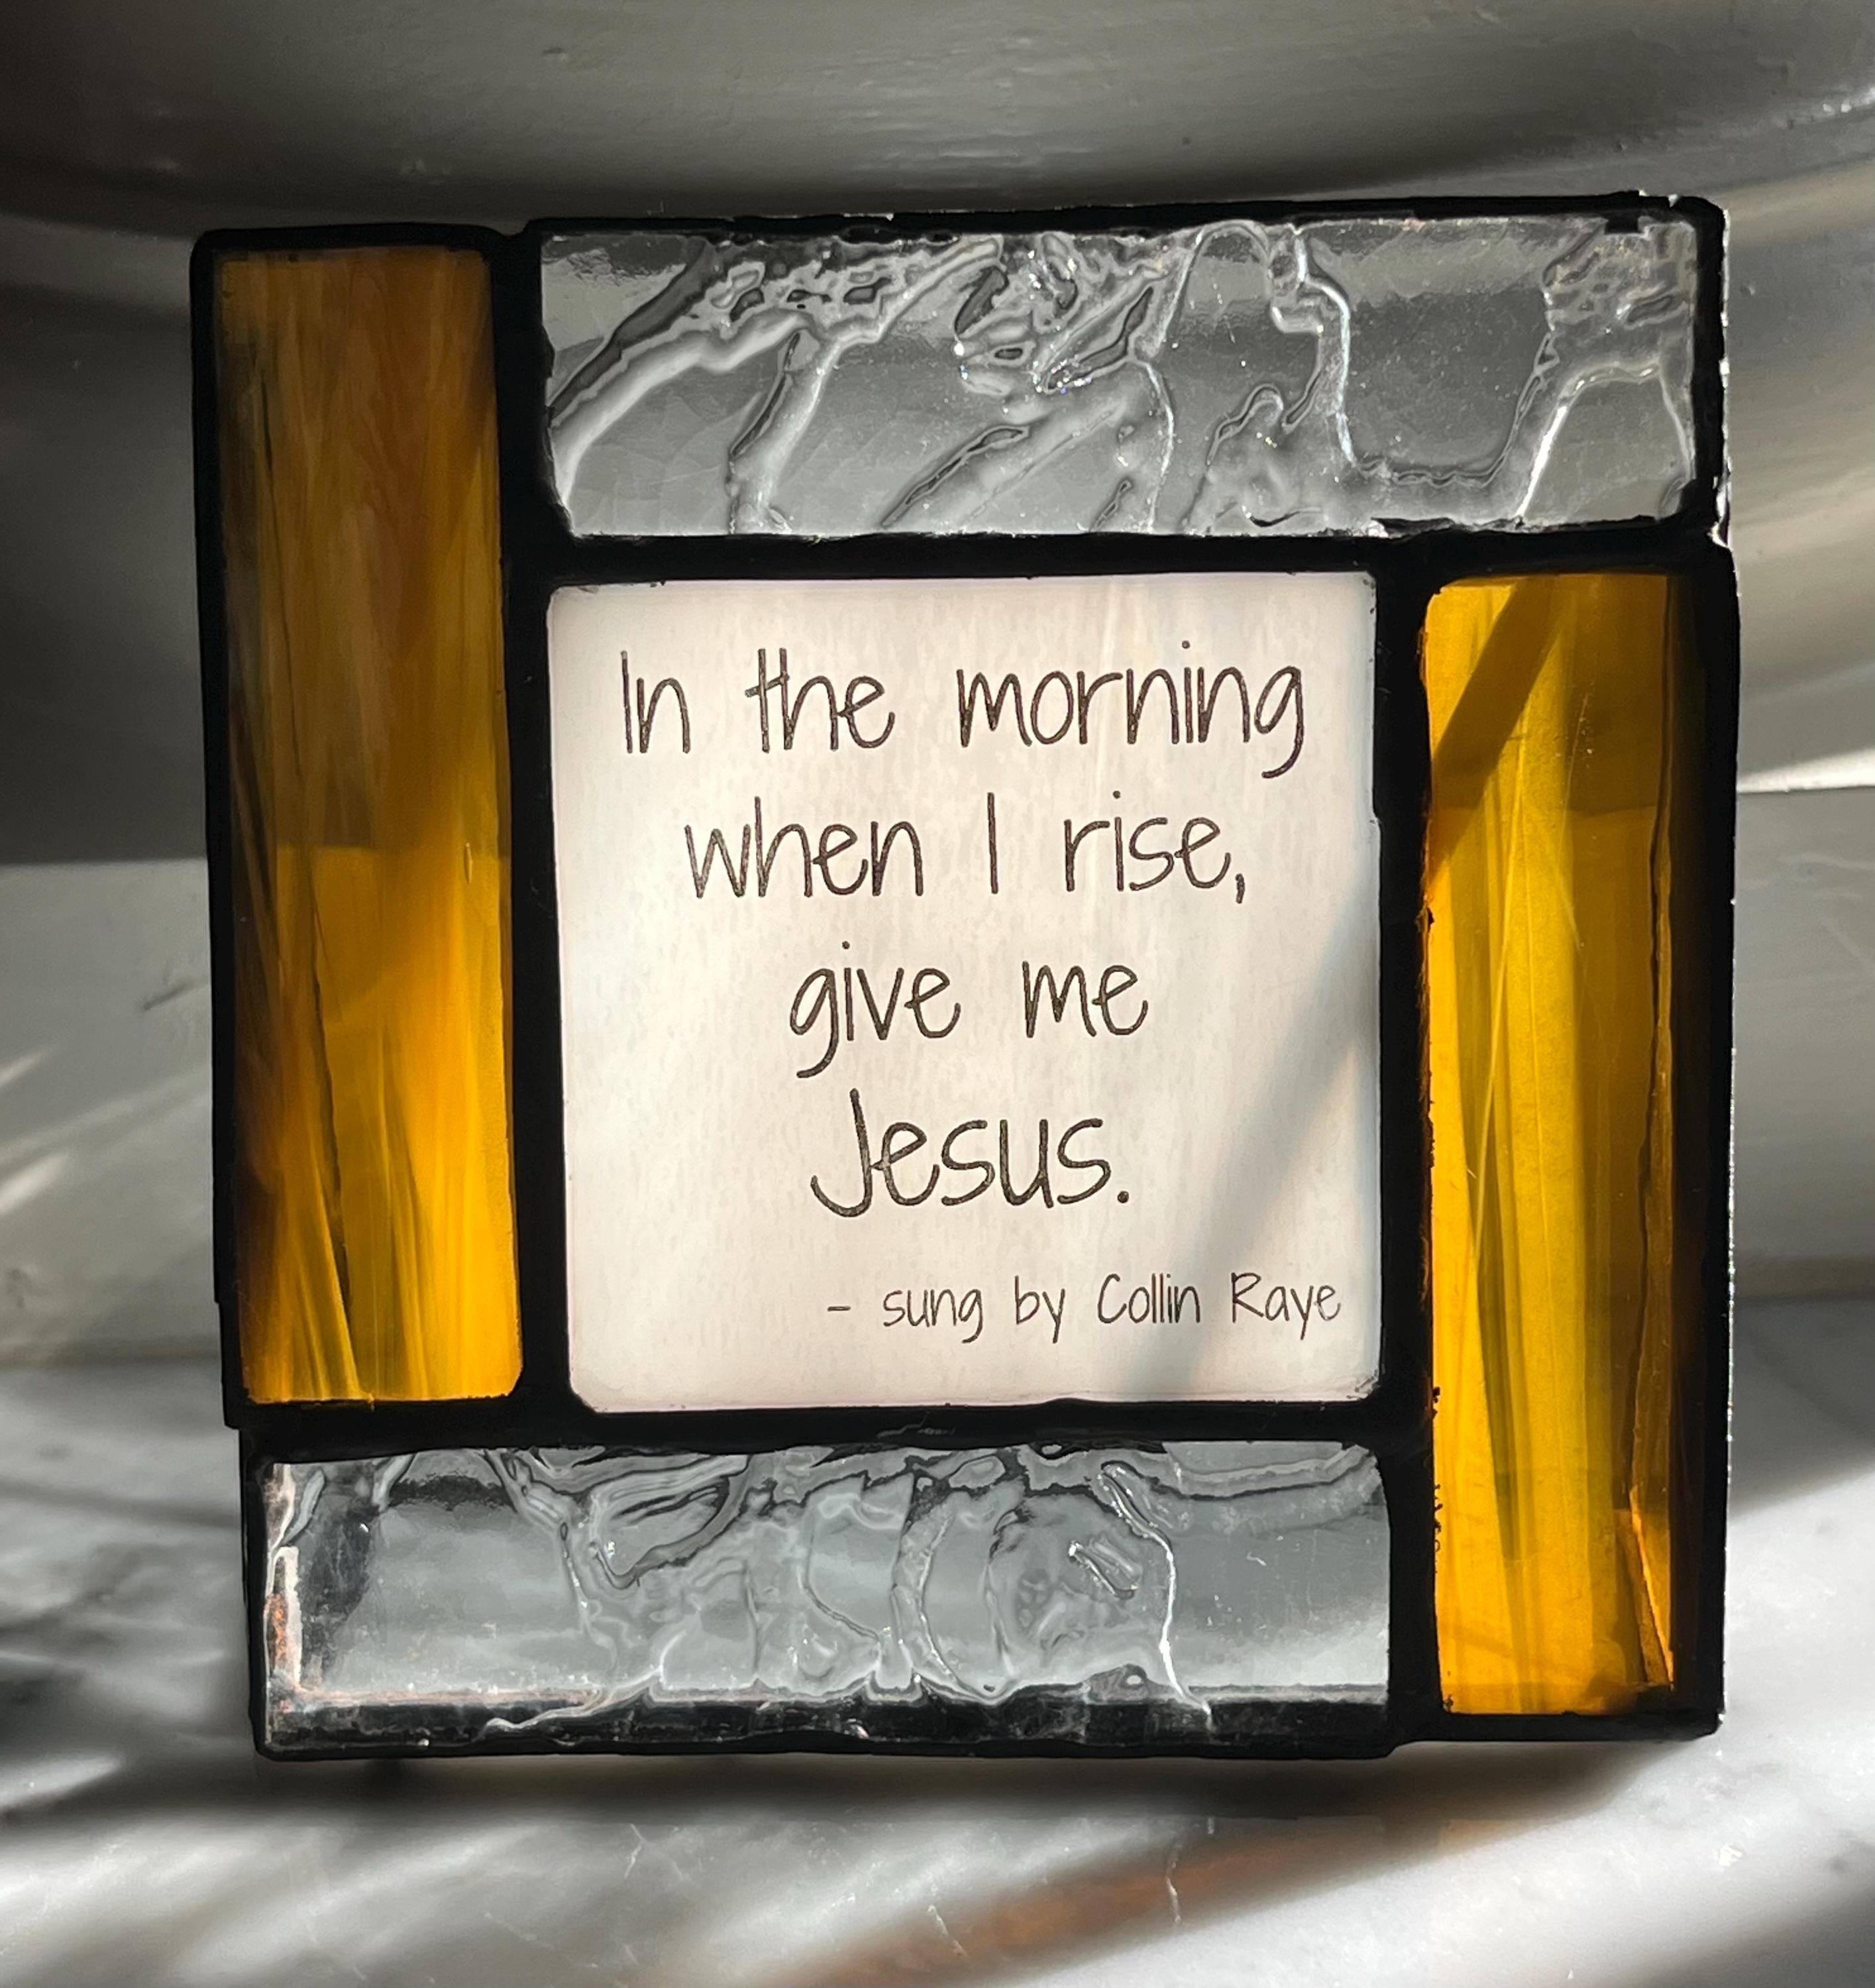 In the morning
when I rise,
give me
Jesus.
- sung by Collin Raye